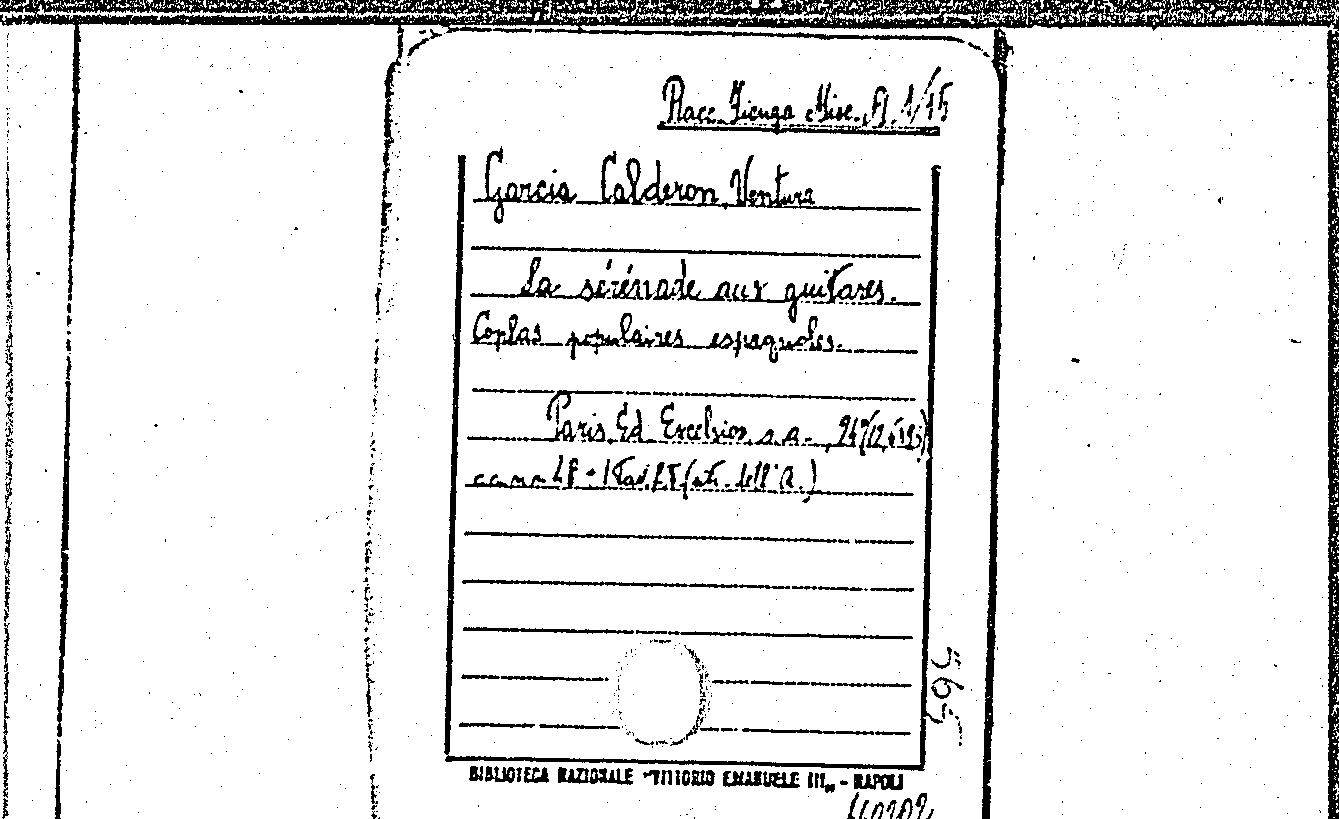 Racc. Misc. A. 1/15
Garcia Calderon Ventura
La sérénade aux guitares.
Coplas populaires espagnoles.
Paris, Ed. Excelsior, s.a.,
(rit. dell'A.)
565
BIBLIOTECA NAZIONALE "VITTORIO EMANUELE III„ - NAPOLI